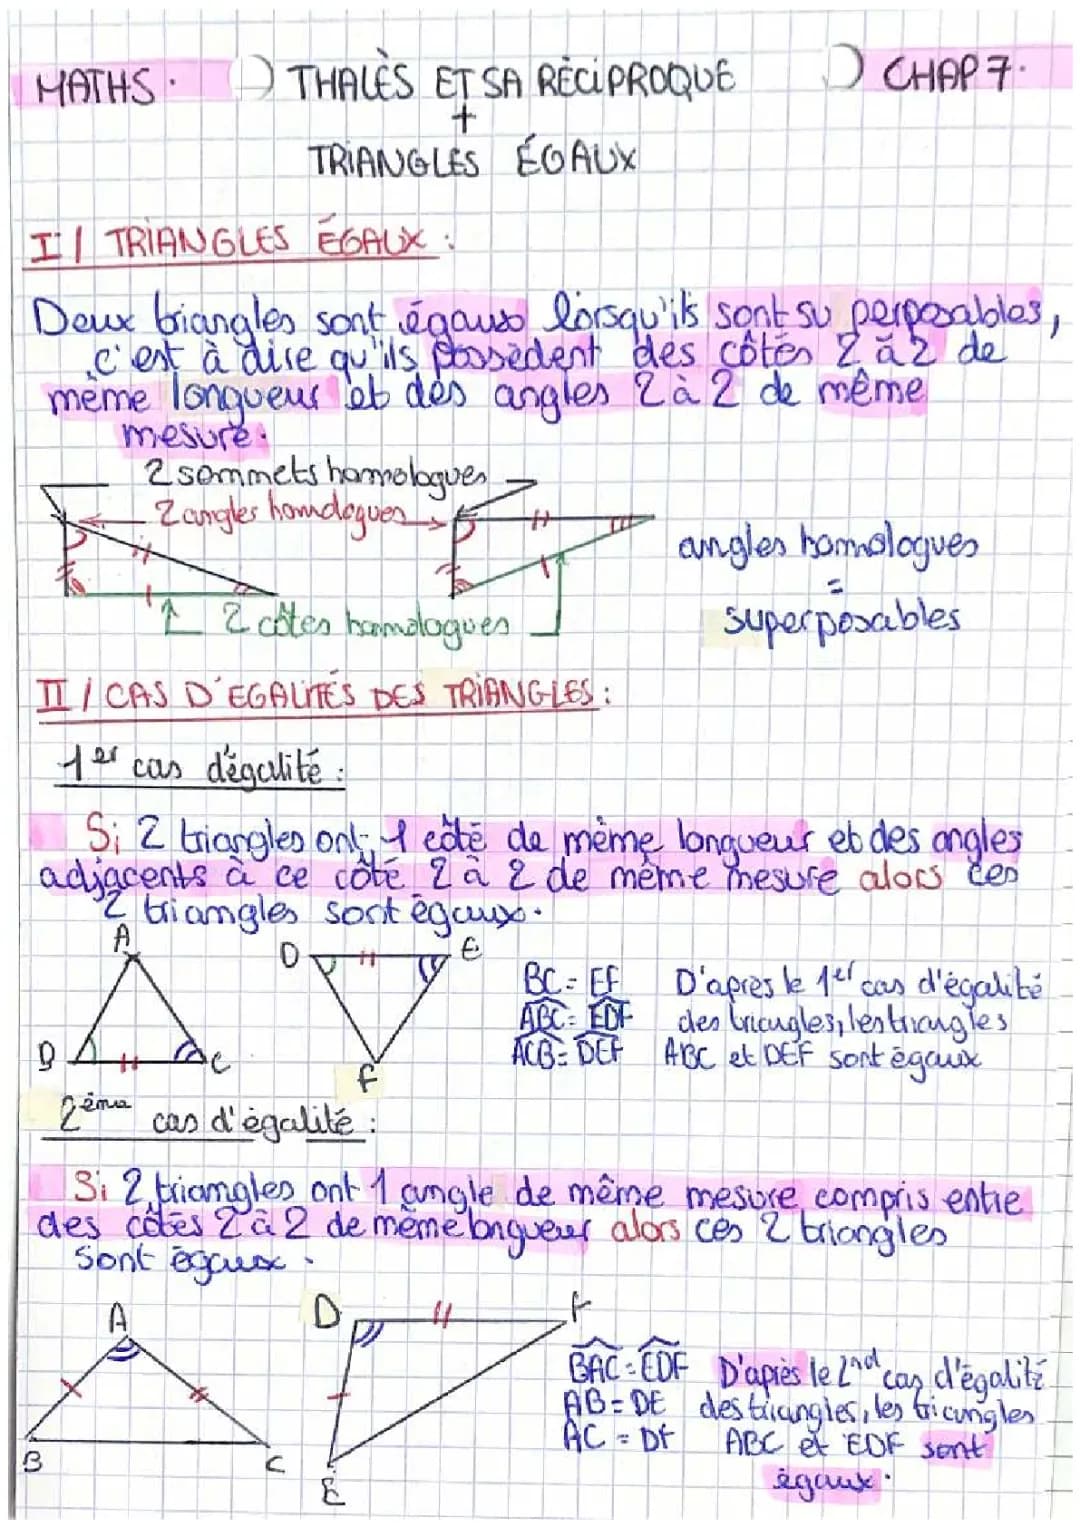 MATHS. THALÈS ET SA RÉCIPROQUE CHAP 7.
+
TRIANGLES ÉGAUX
I / TRIANGLES ÉGAUX :
Deux triangles sont égaux lorsqu'ils sont superposables,
c'est à dire qu'ils possèdent des côtés 2 à 2 de
même longueur et des angles 2 à 2 de même
mesure.
2 sommets homologues
2 angles homologues
angles homologues
=
superposables
2 côtés homologues
II / CAS D'EGALITÉS DES TRIANGLES :
1er cas d'égalité :
Si 2 triangles ont 1 côté de même longueur et des angles
adjacents à ce côté 2 à 2 de même mesure alors ces
2 triangles sont égaux.
A
D E
B C
F
BC = EF D'après le 1er cas d'égalité
ABC = EDF des triangles, les triangles
ACB = DEF ABC et DEF sont égaux
2ème cas d'égalité :
Si 2 triangles ont 1 angle de même mesure compris entre
des côtés 2 à 2 de même longueur alors ces 2 triangles
sont égaux.
A D F
B C E
BAC = EDF D'après le 2nd cas d'égalité
AB = DE des triangles, les triangles
AC = DF ABC et EDF sont
égaux.